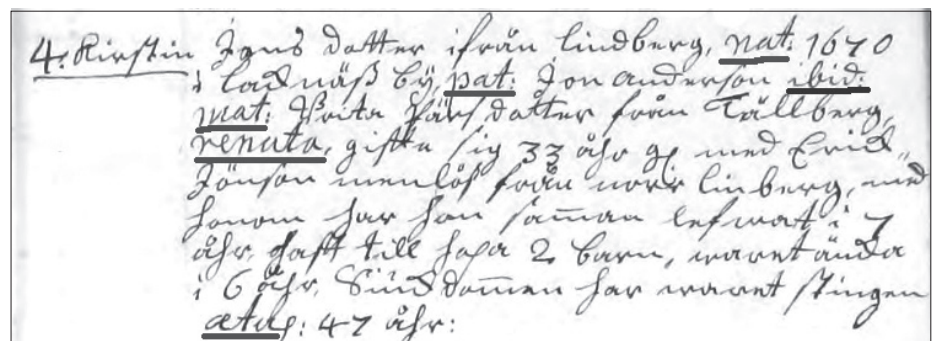 4. Kirstin Jons datter ifrån lindberg, nat: 1670
i lacknäß bÿ, pat: Jon anderson ibid:
mat: Brita Pärs datter från Tällberg,
renata, giftte sig 33 åhr gl med Erick
Jönson menlös från norr linberg, med
honom har hon samman lefwat i 7
åhr, haft till hopa 2 barn, waret änka
i 6 åhr. Siuckdomen har waret stingen
ætat: 47 åhr: